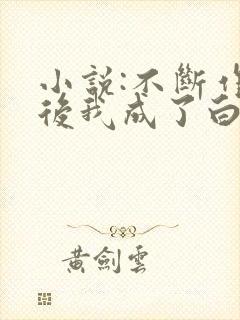 小說:不斷作
後我成了白
黃劍雲